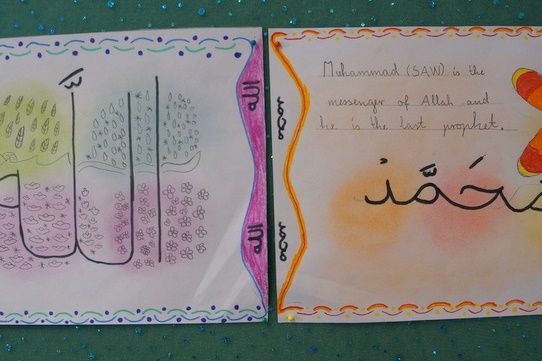 الله
الله
الله
Muhammad (SAW) is the
messenger of Allah and
he is the last prophet.
محمد
محمد
مُحَمَّد